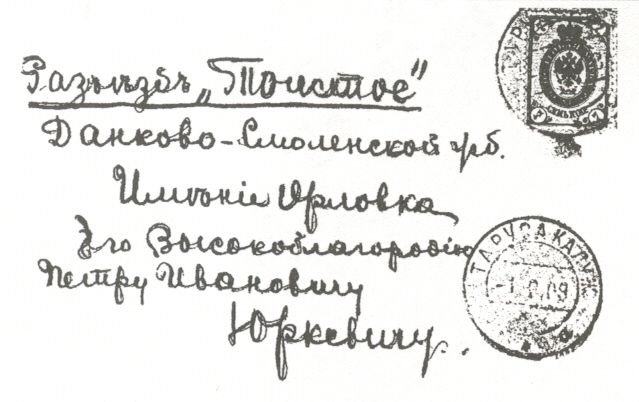 Разъѣздъ „Толстое“
Данково-Смоленской ж.д.
Имѣніе Орловка
Его Высокоблагородію
Петру Ивановичу
Юркевичу.
ТАРУСА КАЛУЖ
СЕМЬ КОП.
7 7